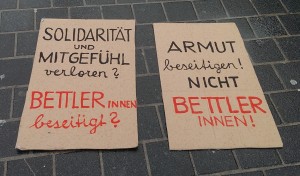 SOLIDARITÄT
UND
MITGEFÜHL
verloren?
BETTLER INNEN
beseitigt?
ARMUT
beseitigen!
NICHT
BETTLER
INNEN!